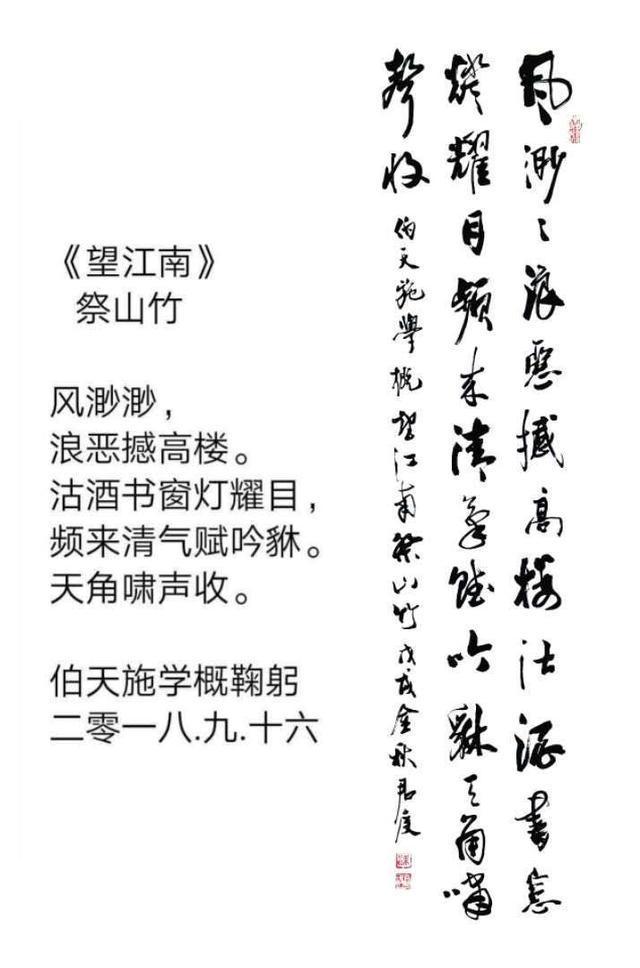 《望江南》
祭山竹
风渺渺，
浪恶撼高楼。
沽酒书窗灯耀目，
频来清气赋吟貅。
天角啸声收。
伯天施学概鞠躬
二零一八.九.十六
風渺〻浪惡撼高楼沽酒書窓
燈耀目頻来清氣賦吟貅天角嘯
聲收
伯天施學概望江南祭山竹戊戌金秋君度